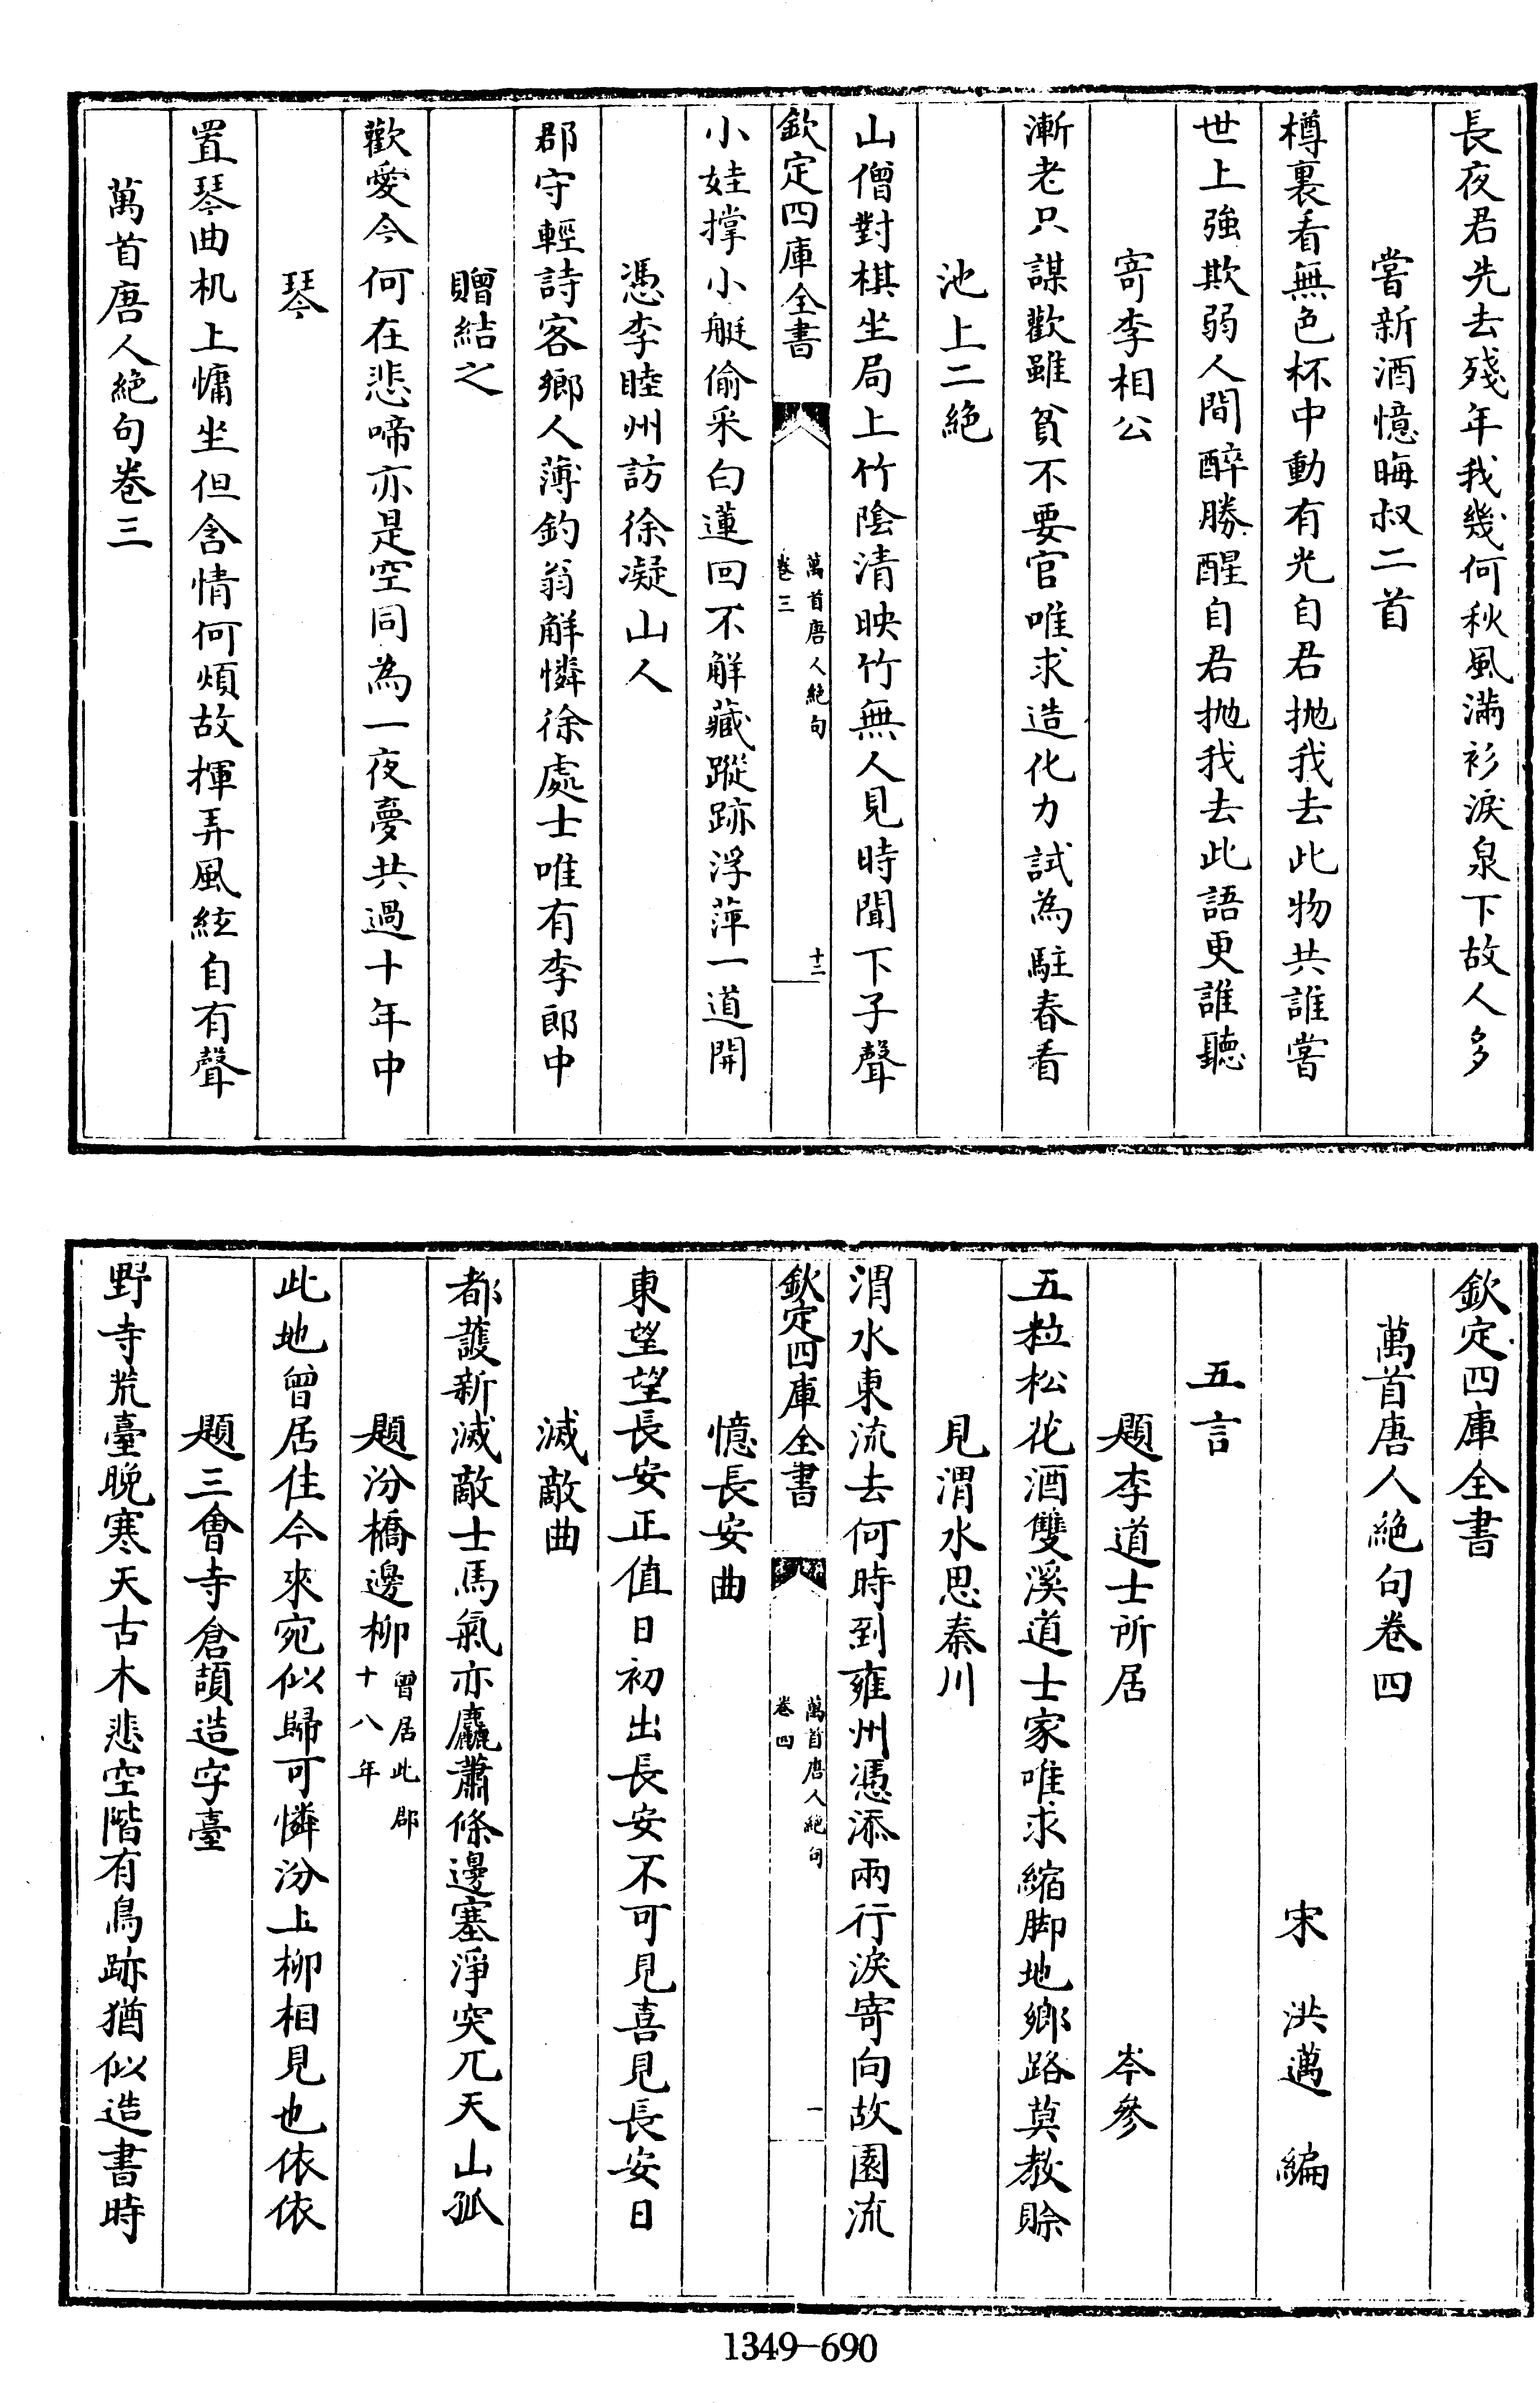 長夜君先去殘年我幾何秋風滿衫淚泉下故人多
嘗新酒憶晦叔二首
樽裏看無色杯中動有光自君拋我去此物共誰嘗
世上強欺弱人間醉勝醒自君拋我去此語更誰聽
寄李相公
漸老只謀歡雖貧不要官唯求造化力試為駐春看
池上二絕
山僧對棋坐局上竹陰清映竹無人見時聞下子聲
欽定四庫全書
萬首唐人絕句
卷三
十二
小娃撑小艇偷采白蓮回不解藏蹤跡浮萍一道開
憑李睦州訪徐凝山人
郡守輕詩客鄉人薄釣翁解憐徐處士唯有李郎中
贈結之
歡愛今何在悲啼亦是空同為一夜夢共過十年中
琴
置琴曲机上慵坐但含情何煩故揮弄風絃自有聲
萬首唐人絕句卷三
欽定四庫全書
萬首唐人絕句卷四
宋 洪邁 編
五言
題李道士所居 岑參
五粒松花酒雙溪道士家唯求縮脚地鄉路莫教賒
見渭水思秦川
渭水東流去何時到雍州憑添兩行淚寄向故園流
欽定四庫全書
萬首唐人絕句
卷四
一
憶長安曲
東望望長安正值日初出長安不可見喜見長安日
滅敵曲
都護新滅敵士馬氣亦麤蕭條邊塞淨突兀天山孤
題汾橋邊柳曾居此郡十八年
此地曾居住今來宛似歸可憐汾上柳相見也依依
題三會寺倉頡造字臺
野寺荒臺晚寒天古木悲空階有鳥跡猶似造書時
1349-690